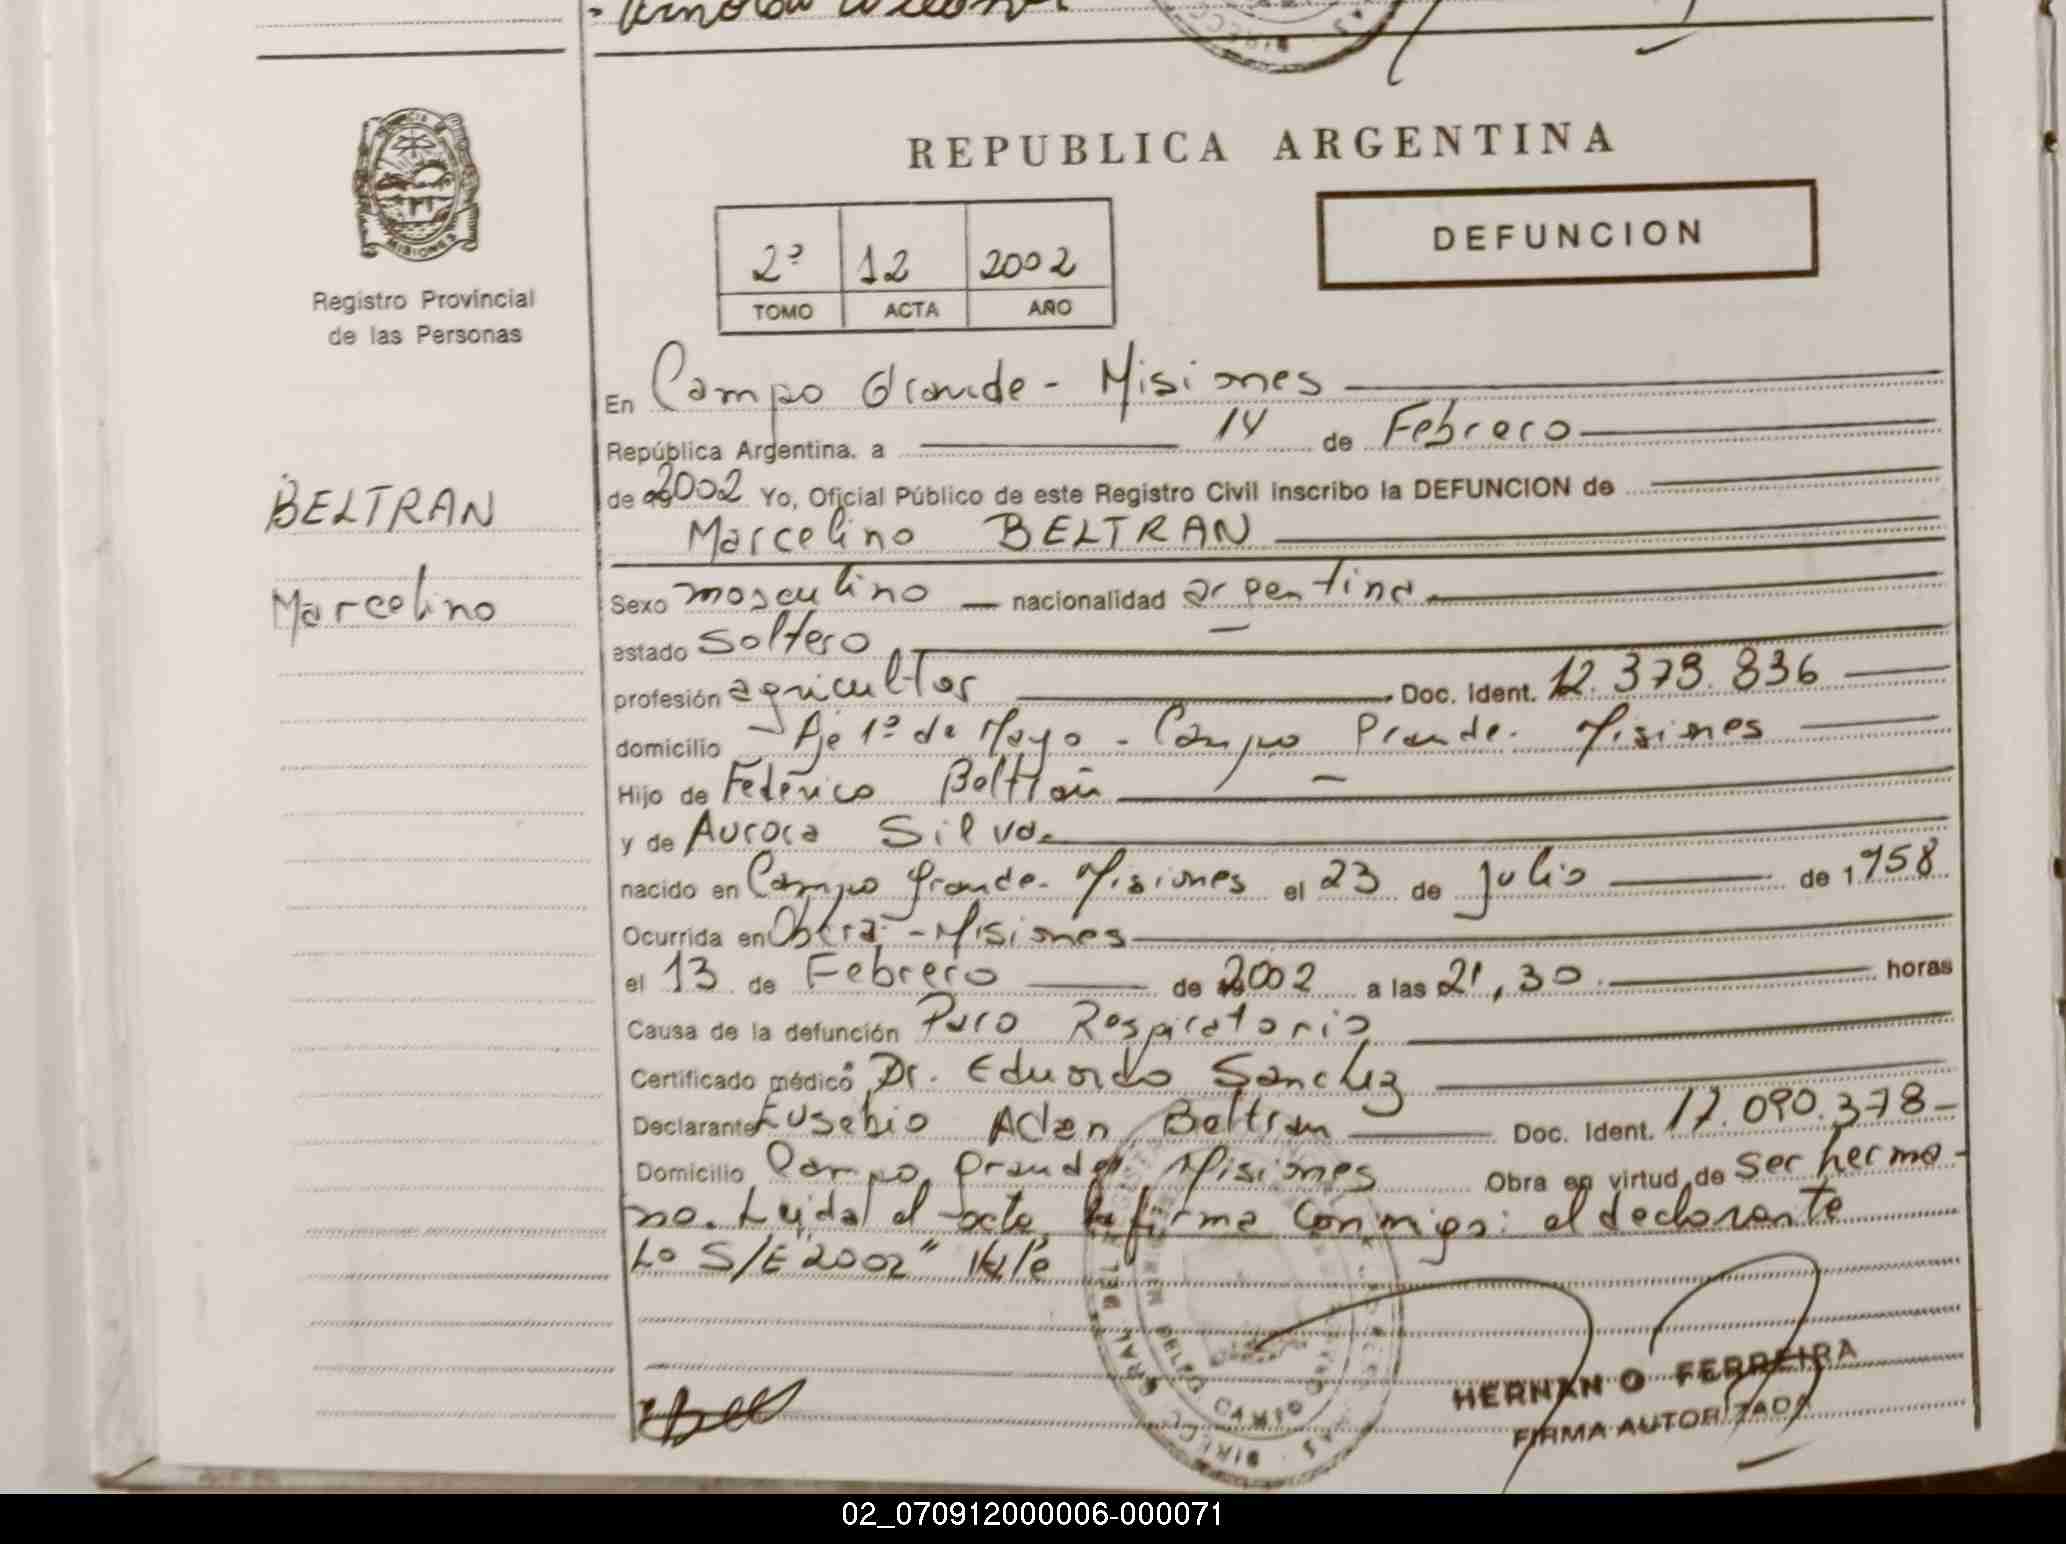 REPUBLICA ARGENTINA
DEFUNCION
2º 12 2002
TOMO ACTA AÑO
MISIONES
Registro Provincial
de las Personas
BELTRAN
Marcelino
En Campo Grande - Misiones
República Argentina, a 14 de Febrero
de 2002 Yo, Oficial Público de este Registro Civil inscribo la DEFUNCION de
Marcelino BELTRAN
Sexo masculino nacionalidad argentina
estado soltero
profesión agricultor Doc. Ident. 12.373.836
domicilio Pje 1º de Mayo - Campo Grande - Misiones
Hijo de Federico Beltran
y de Aurora Silva
nacido en Campo Grande - Misiones el 23 de Julio de 1958
Ocurrida en Oberá - Misiones
el 13 de Febrero de 2002 a las 21,30 horas
Causa de la defunción Paro Respiratorio
Certificado médico Dr. Eduardo Sanchez
Declarante Eusebio Adan Beltran Doc. Ident. 17.090.378-
Domicilio Campo Grande Misiones Obra en virtud de ser herma-
no. Leida el acta la firma conmigo: el declarante
Lo S/E 2002" Vale
HERNAN O FERREIRA
FIRMA AUTORIZADA
02_070912000006-000071